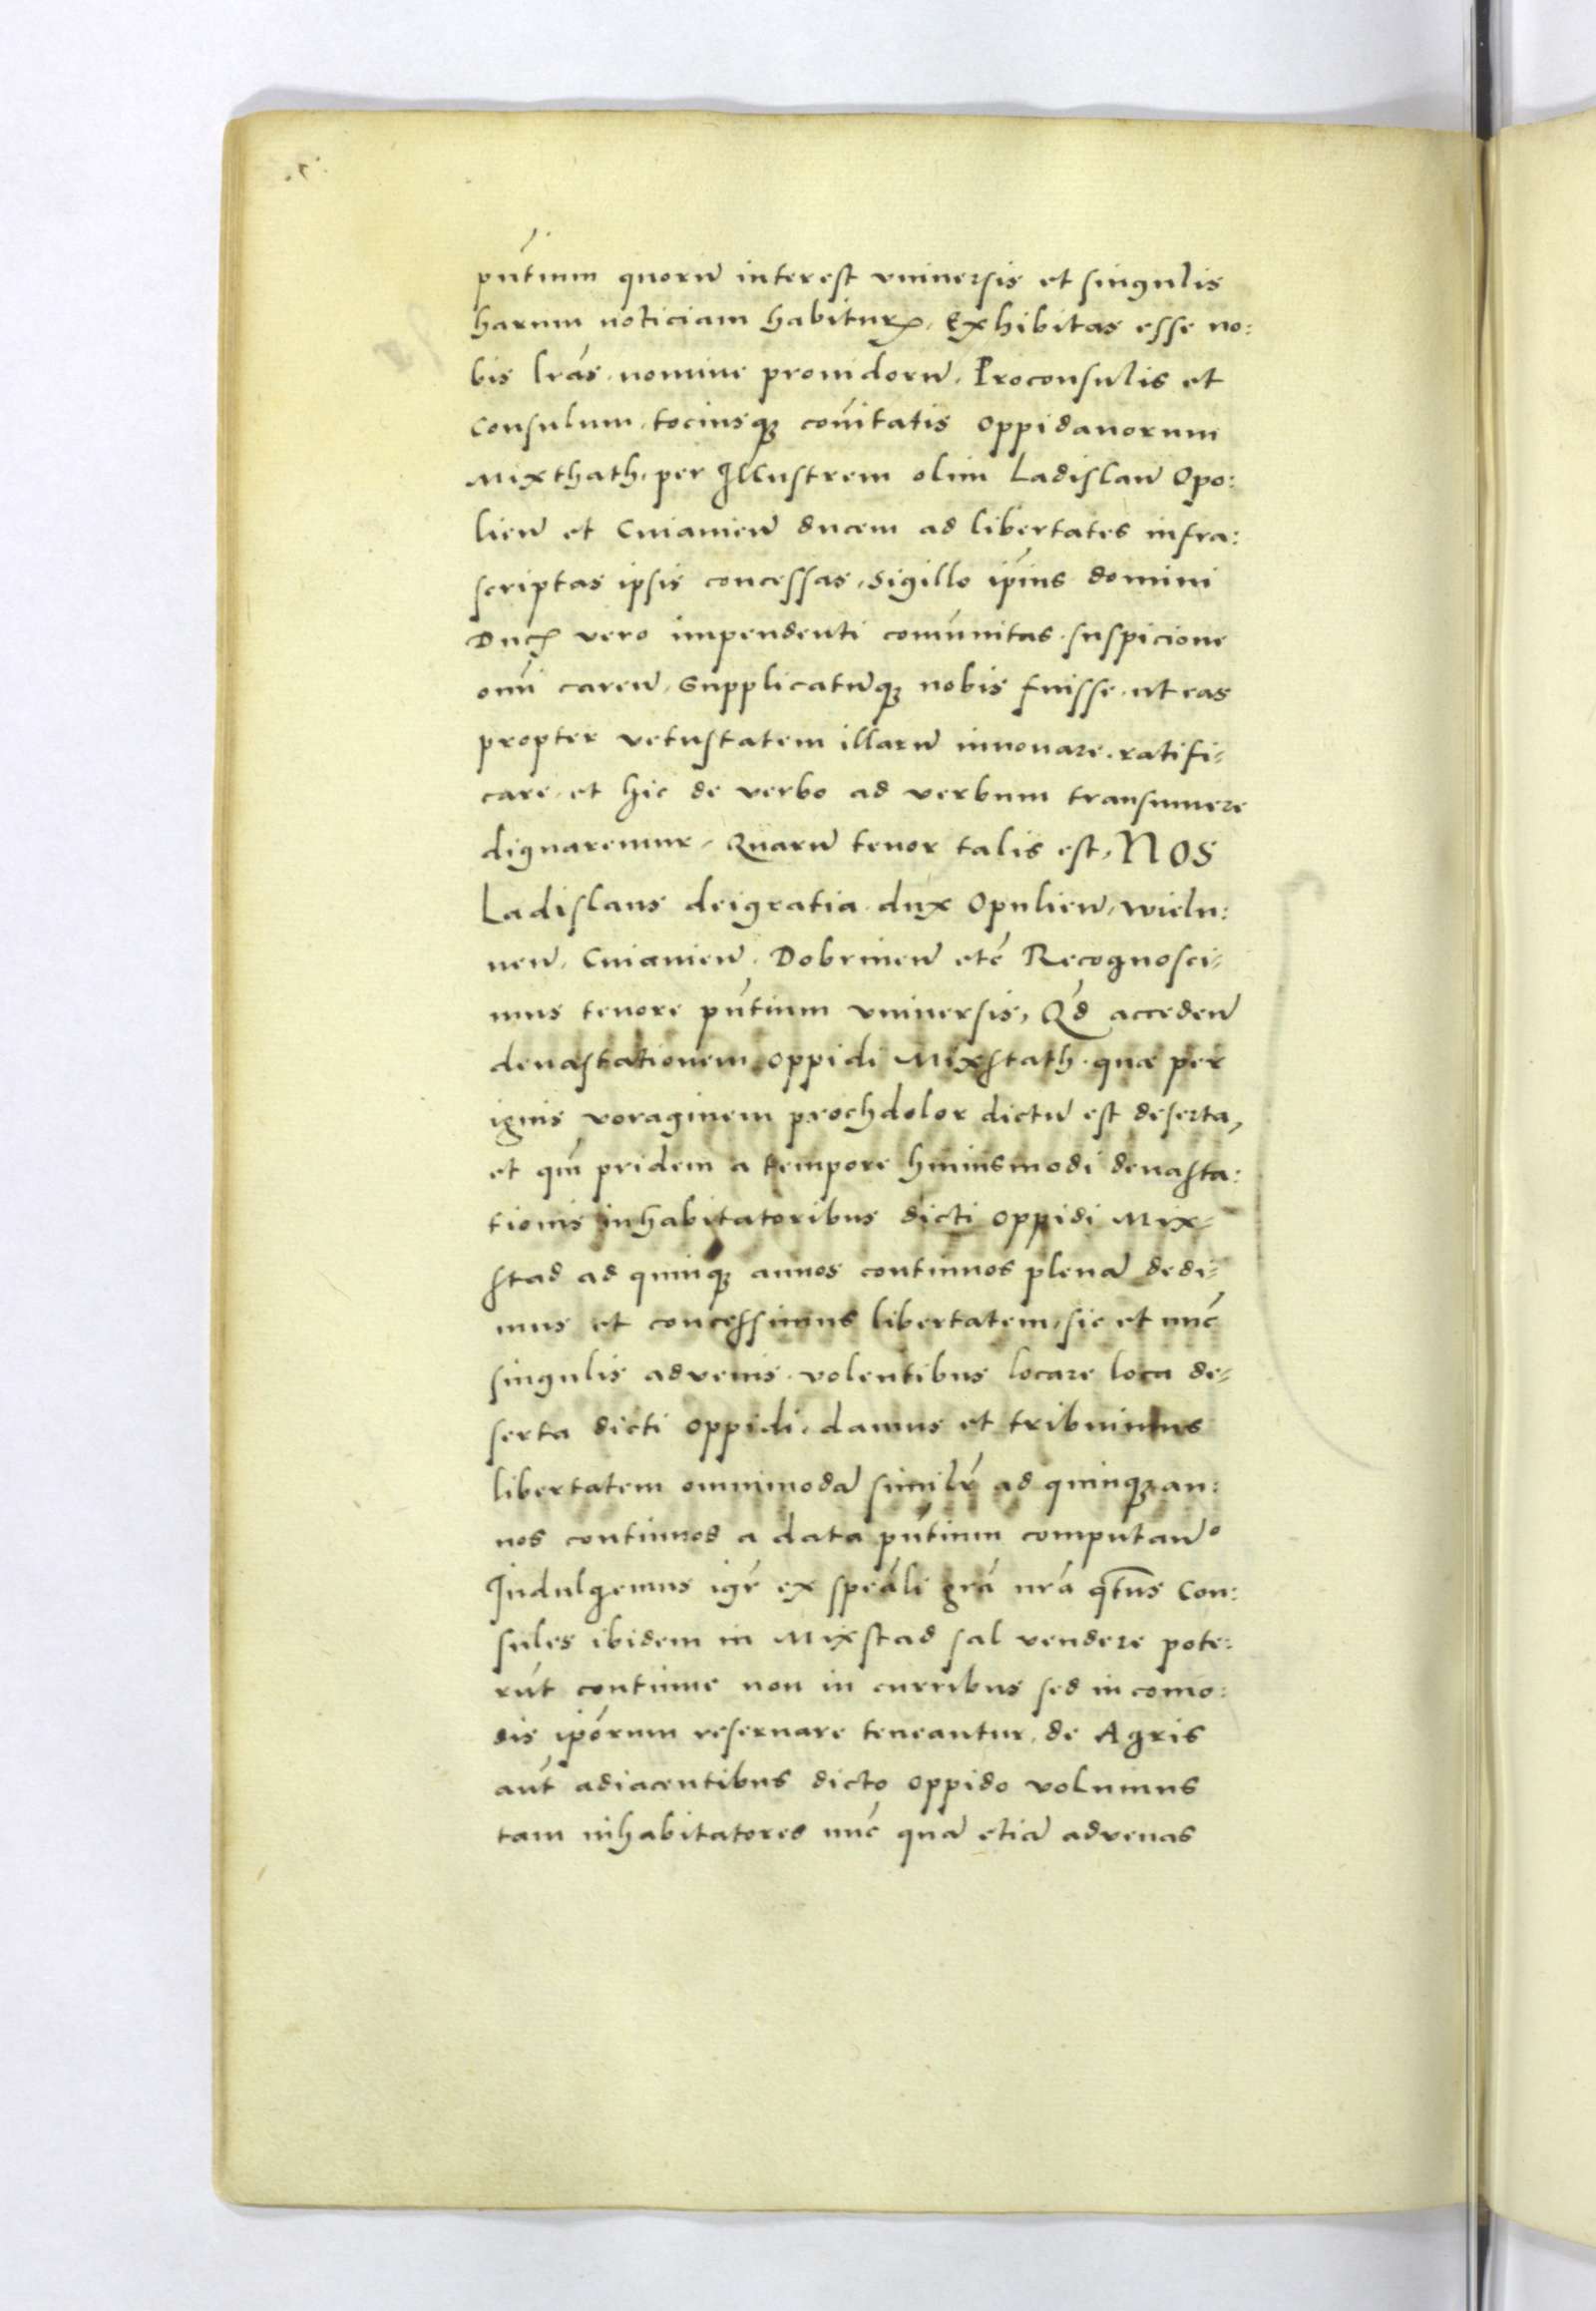 pn̄tium quorū interest vniuersis et singulis
harum noticiam habituꝝ, Exhibitas esse no:
bis lrās nomine prouidorū, Proconsulis et
Consulum, tociusqꝫ cōmitatis oppidanorum
Mixthath, per Illustrem olim Ladislaū Opo:
lieñ et Cuiauieñ ducem ad libertates infra:
scriptas ipsis concessas, Sigillo ip̄ius domini
Ducꝭ vero impendenti comūnitas, suspicione
om̄i careñ, Supplicatūqꝫ nobis fuisse, ut eas
propter vetustatem illarū innouare, ratifi-
care, et hic de verbo ad verbum transumere
dignaremur, Quarū tenor talis est, NOS
Ladislaus deigratia dux Opulieñ, Wielu:
neñ, Cuiauieñ, Dobrineñ etc̄ Recognosci-
mus tenore pn̄tium vniuersis, Qd̄ accedeñ
deuastationem oppidi Mixstath, quæ per
ignis voraginem prochdolor dictū est deserta,
et qm̄ pridem a tempore huiusmodi deuasta:
tionis inhabitatoribus dicti oppidi Mix-
stad ad quinqꝫ annos continuos plenā dedi-
mus et concessimus libertatem, sic et nūc
singulis aduenis volentibus locare loca de-
serta dicti oppidi, damus et tribuimus
libertatem omnimodā similr̄ ad quinqꝫ an:
nos continuos a data pn̄tium computañº
Indulgemus igr̄ ex spēali grā nrā qt̄us Con:
sules ibidem in Mixstad sal vendere pote:
rūt continue non in curribus sed in como:
dis ip̄orum reseruare teneantur, de Agris
aūt adiacentibus dicto oppido volumus
tam inhabitatores nūc quā etiā aduenas